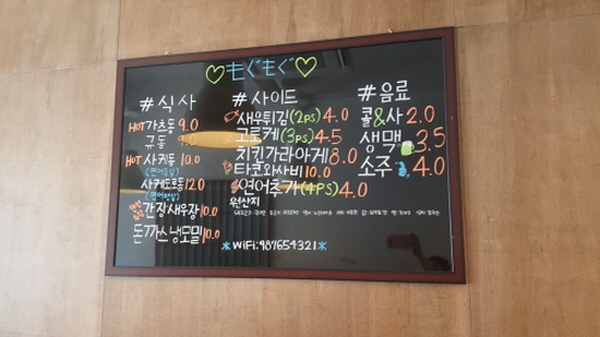 もぐもぐ
#식사
HOT 가츠동 9.0
규동
HOT 사케동 10.0
(연어덮밥)
사케도로동 12.0
간장새우장 10.0
돈까스냉모밀 10.0
#사이드
새우튀김(2PS) 4.0
고로케(3PS) 4.5
치킨가라아게 8.0
타코와사비 10.0
연어추가(4PS) 4.0
원산지
#음료
콜&사 2.0
생맥 3.5
소주 4.0
*WiFi:987654321*